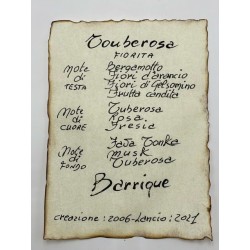 Touberosa
FIORITA
Note di TESTA
Bergamotto
Fiori d'arancio
Fiori di Gelsomino
Frutta candita
Note di CUORE
Tuberosa
Rosa
Fresia
Note di FONDO
Fava Tonka
Musk
Tuberosa
Barrique
creazione: 2006-Lancio: 2021